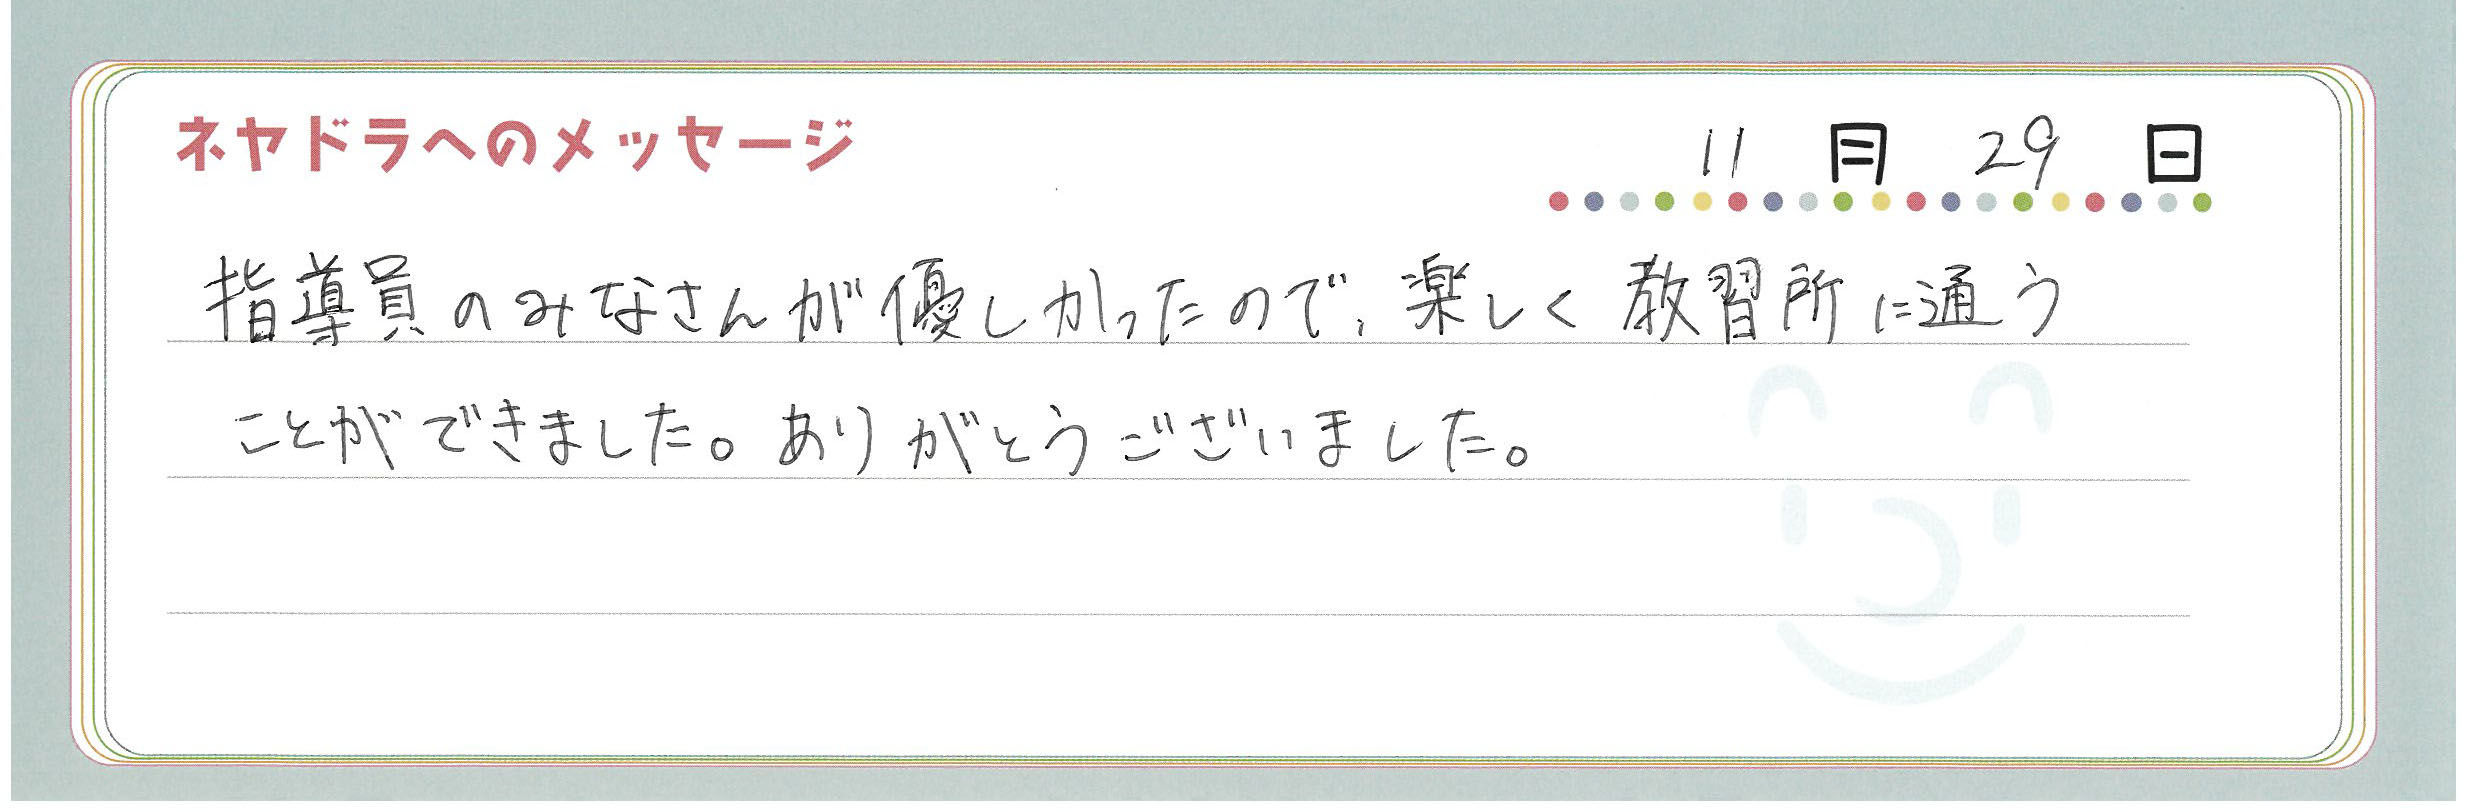 ネヤドラへのメッセージ
11月29日
指導員のみなさんが優しかったので、楽しく教習所に通う
ことができました。ありがとうございました。